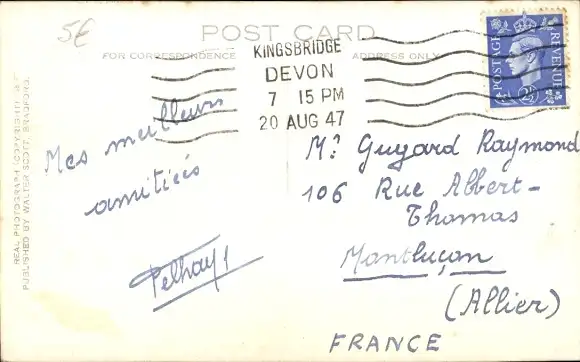 5€
POST CARD
FOR CORRESPONDENCE
ADDRESS ONLY
KINGSBRIDGE
DEVON
7 15 PM
20 AUG 47
POSTAGE
REVENUE
REAL PHOTOGRAPH (COPYRIGHT)
PUBLISHED BY WALTER SCOTT, BRADFORD.
Mes meilleurs
amitiés
Mr Guyard Raymond
106 Rue Albert-
Thomas
Montluçon
(Allier)
FRANCE